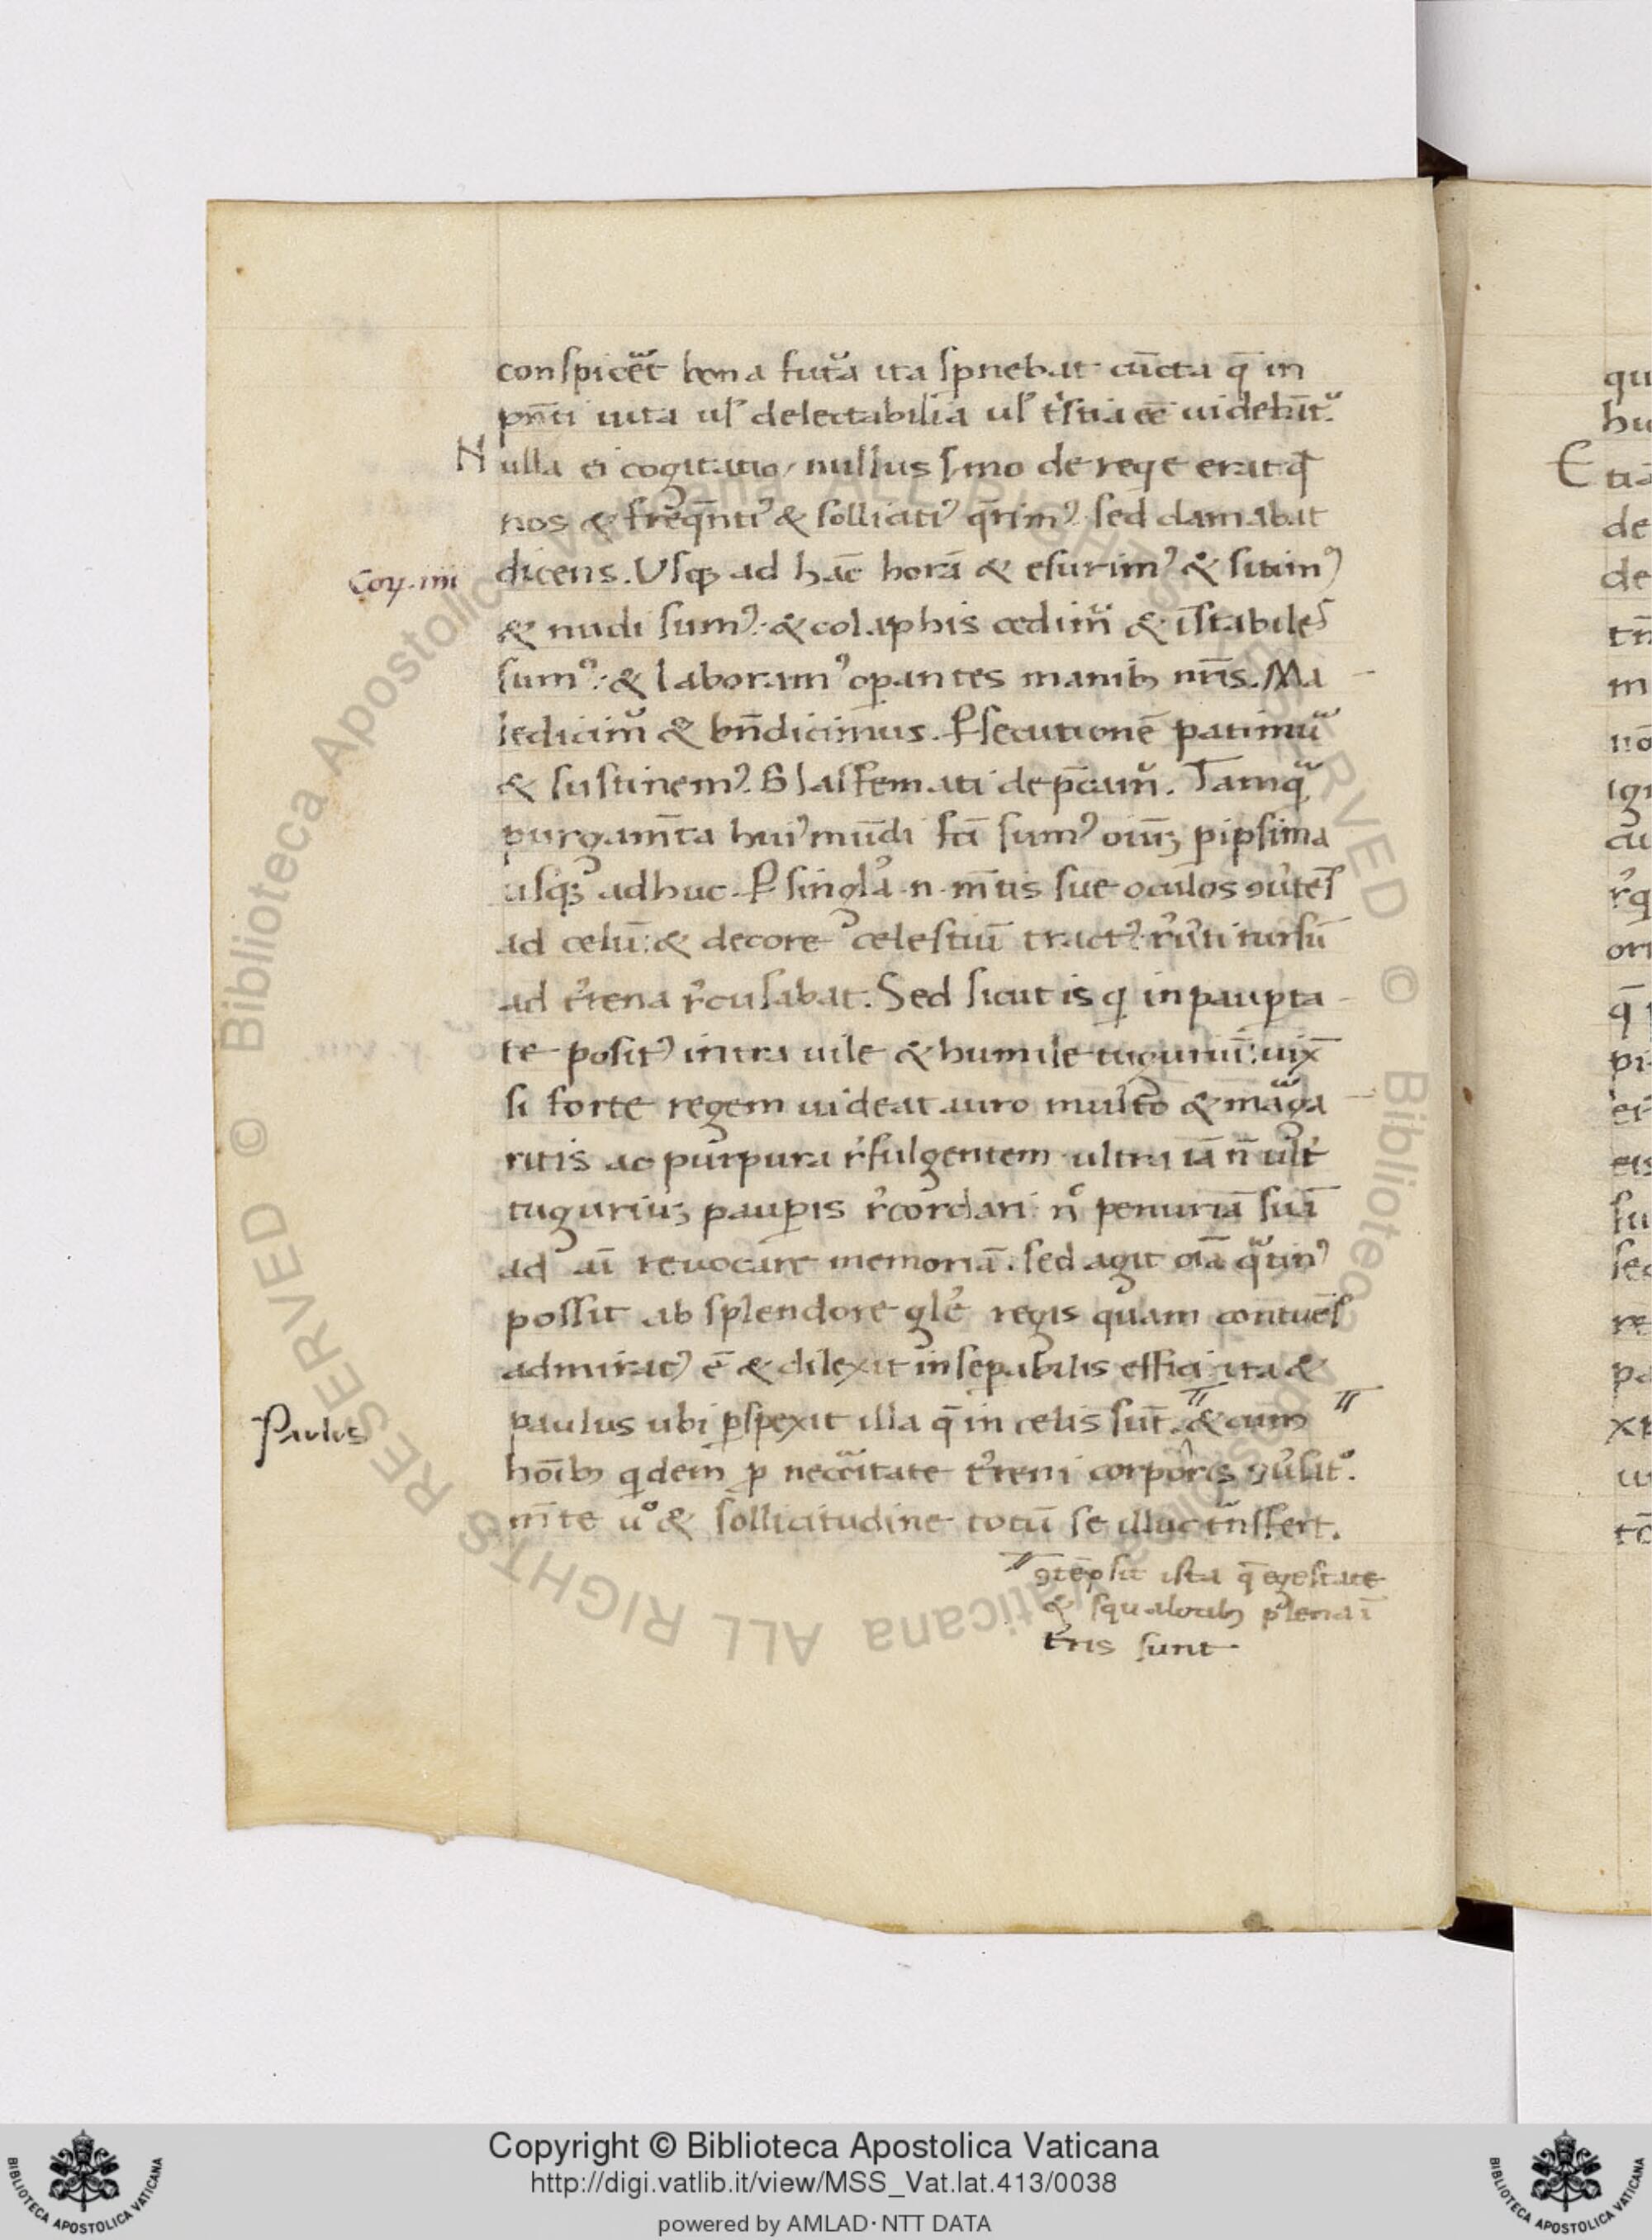 conspicẽt bona futᷓa ita spnebat cũcta q̃ in
pñti uita ul' delectabilia ul' tristia eẽ uidebñt᷑.
Nulla ei cogitatio, nullus s̓mo de req̓e erat q̃
nos & freq̃nt᷒ & sollicit᷒ q̃rim᷒. sed clamabat
Coꝝ. iiii
dicens. Usqꝫ ad hãc horã & esurim᷒ & sitim᷒
& nudi sum᷒. & colaphis cedim᷑ & ĩstabiles
sum᷒. & laboram᷒ oꝑantes manibꝫ nr̃is. Ma
ledicim᷑ & bñdicimus. ꝑsecutionẽ patimu᷑
& sustinem᷒. Blasfemati dep̃cam᷑. Tamqᷓ
purgam̃ta hui᷒ mũdi fcĩ sum᷒ oiũꝫ pipsima
usqꝫ adhuc. ꝑ singl'a .n. m̃tis sue oculos ꝯũtẽs
ad celũ: & decore celestiũ tract᷒. r̓ũti rursũ
ad t̓rena r̓cusabat. Sed sicut is q̓ in pauꝑta
te posit᷒ intra uile & humile tuguriũ: uix̃
si forte regem uideat auro mũlto & mᷓga
ritis ac purpura r̓fulgentem ultra iã ñ ult̓
tuguriũꝫ pauꝑis r̓cordari. nͨ penuriã suã
ad aĩ reuocare memoriã. sed agit oĩa qᷓtin᷒
possit ab splendore gl̓e regis quam contuẽs
admirat᷒ ẽ & dilexit inseꝑabilis effici ita &
Paulus
paulus ubi ꝑspexit illa q̃ in celis sũt. & cum
hoĩbꝫ q̓dem ꝓ neccĩtate t̓reni corporis ꝯũsat᷒.
m̃te uͦ & sollicitudine totũ se illuc tñsfert.
ꝯtẽpsit ista q̃ egestate
& squaloribꝫ plena ĩ
t̓ris sunt
qu
hu
Etiã
de
de
tñ
m
nõ
igi
cũ
r̓q
ori
q̃
pi
ei
eis
su
sed
re
pa
xp
u
tõ
Copyright © Biblioteca Apostolica Vaticana
http://digi.vatlib.it/view/MSS_Vat.lat.413/0038
powered by AMLAD・NTT DATA
BIBLIOTECA APOSTOLICA VATICANA
BIBLIOTECA APOSTOLICA VATICANA
© Biblioteca Apostolica Vaticana ALL RIGHTS RESERVED © Biblioteca Apostolica Vaticana ALL RIGHTS RESERVED